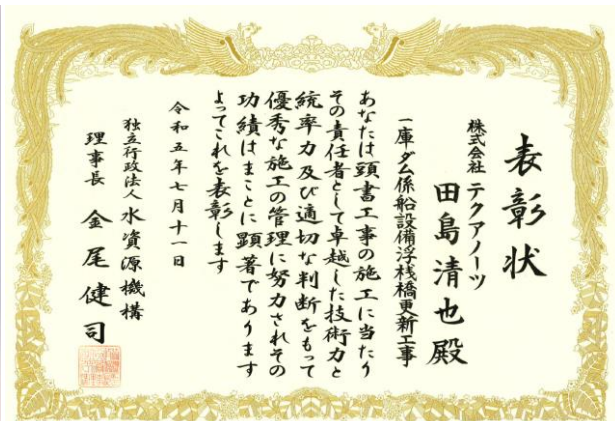 表彰状
株式会社 テクアノーツ
田島清也殿
一庫ダム係船設備浮桟橋更新工事
あなたは頭書工事の施工に当たり
その責任者として卓越した技術力と
統率力及び適切な判断をもって
優秀な施工の管理に努力されその
功績はまことに顕著であります
よってこれを表彰します
令和五年七月十一日
独立行政法人 水資源機構
理事長 金尾健司